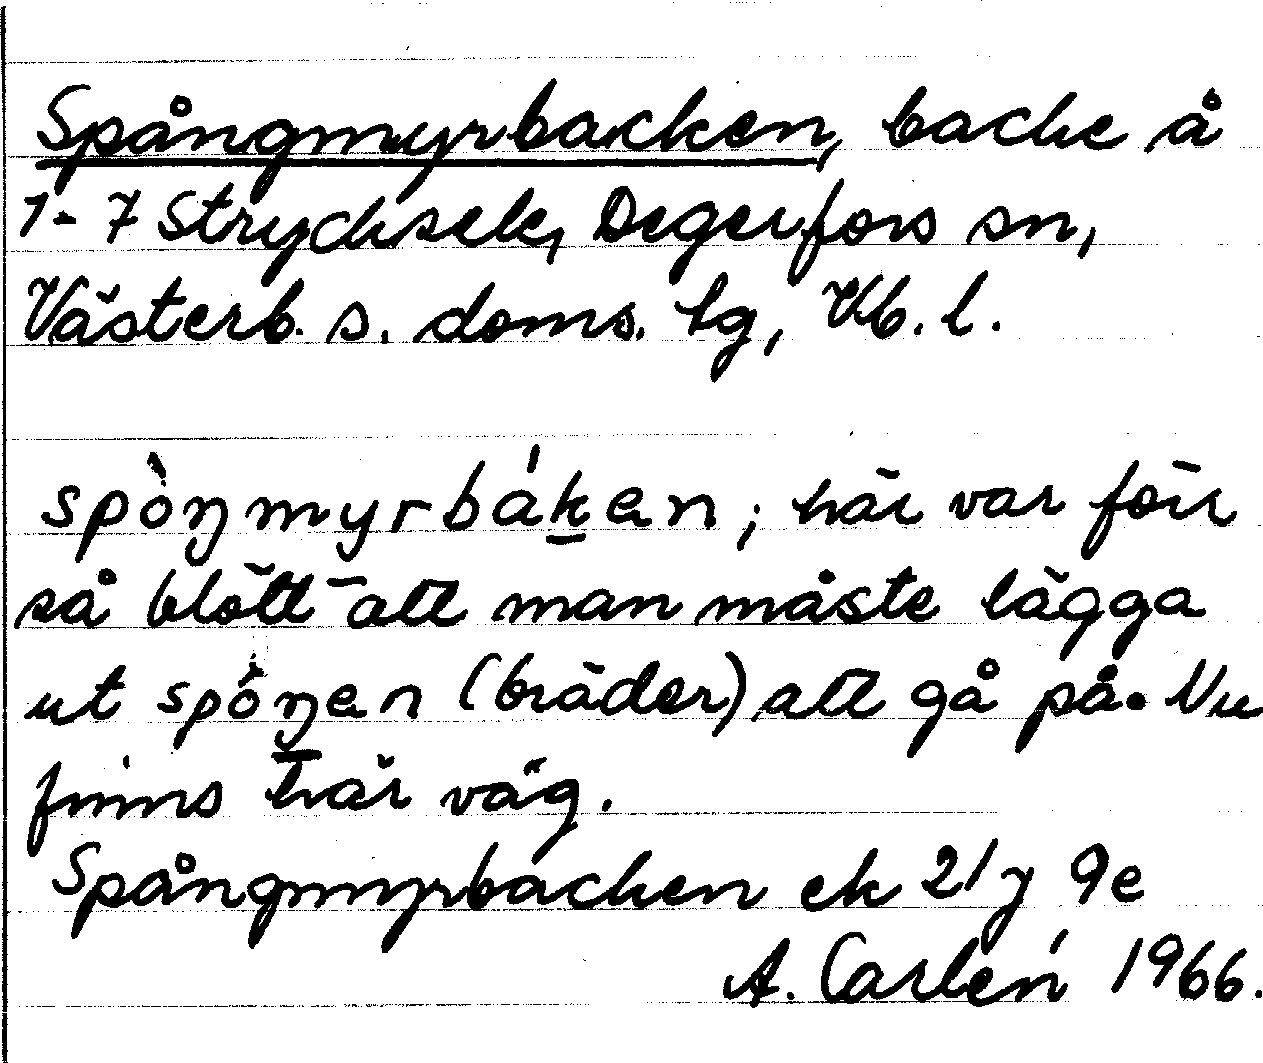 Spångmyrbacken, backe å
1-7 Strycksele, Degerfors sn,
Västerb. s. doms. tg, Vb. l.
spòŋmyrbáken; här var förr
så blött att man måste lägga
ut spóŋen (bräder) att gå på. Nu
finns här väg.
Spångmyrbacken ek 21 J 9e
A. Carlén 1966.